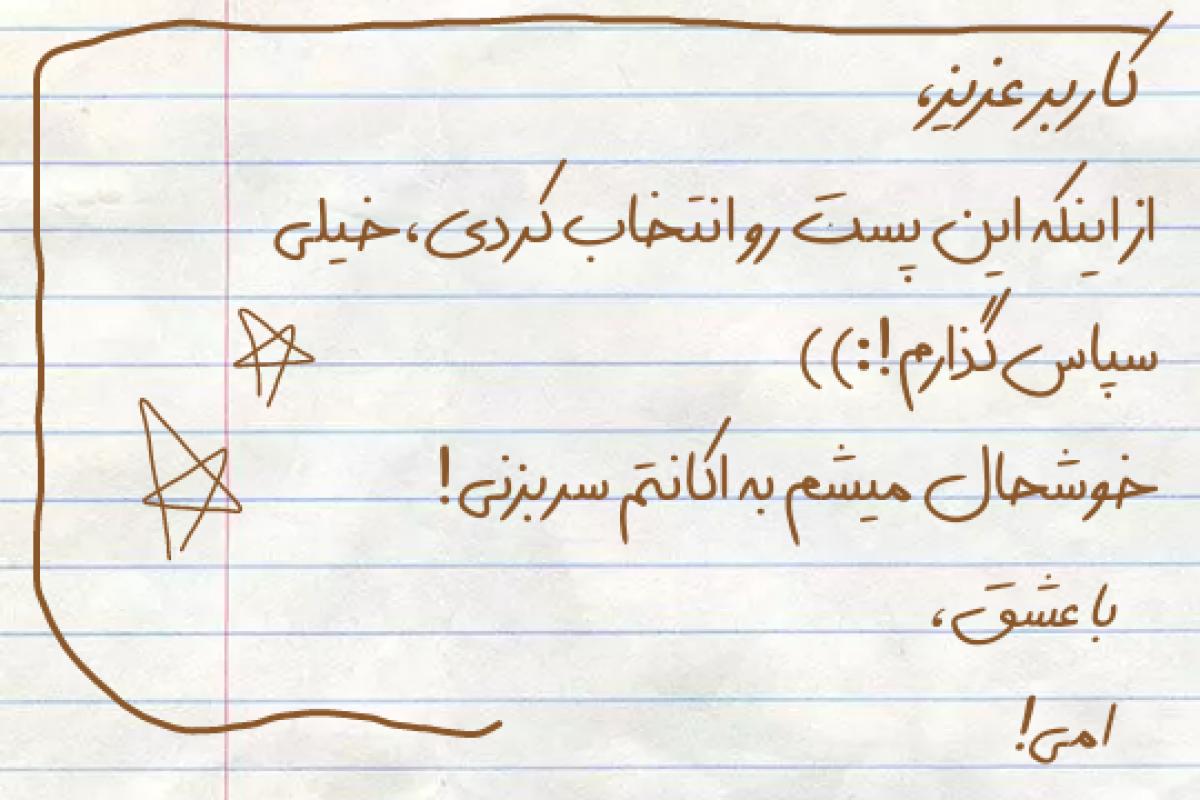 کاربر عزیز،
از اینکه این پست رو انتخاب کردی، خیلی
سپاس گذارم!:))
خوشحال میشم به اکانتم سر بزنی!
با عشق،
امی!